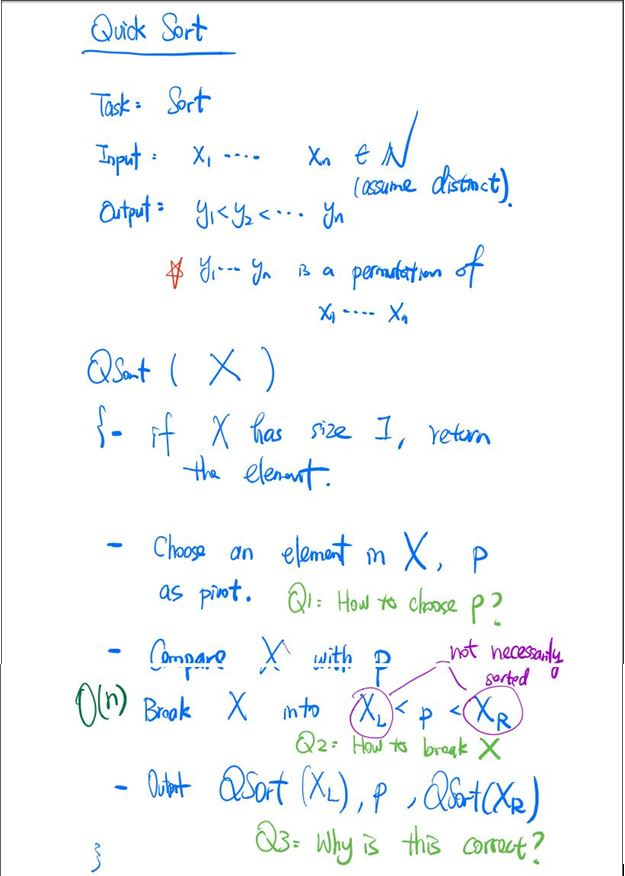 Quick Sort
Task: Sort
Input: X₁ ···· Xₙ ∈ ℕ
(assume distinct).
Output: y₁ < y₂ < ··· yₙ
☆ y₁ ··· yₙ is a permutation of
X₁ ···· Xₙ
QSort ( X )
{ - if X has size 1, return
the element.
- Choose an element in X, p
as pivot. Q1: How to choose p?
- Compare X with p
not necessarily
sorted
O(n) Break X into X_L < p < X_R
Q2: How to break X
- Output QSort (X_L), p, QSort(X_R)
Q3: Why is this correct?
}